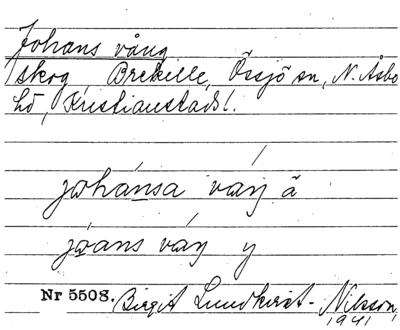 Johans vång
skog, Brekille, Össjö sn, N. Åsbo
hd, Kristianstads l.
johánsa váŋ ã
jo̱ans váŋ y
Nr 5508. Birgit Lundkvist - Nilsson,
1941